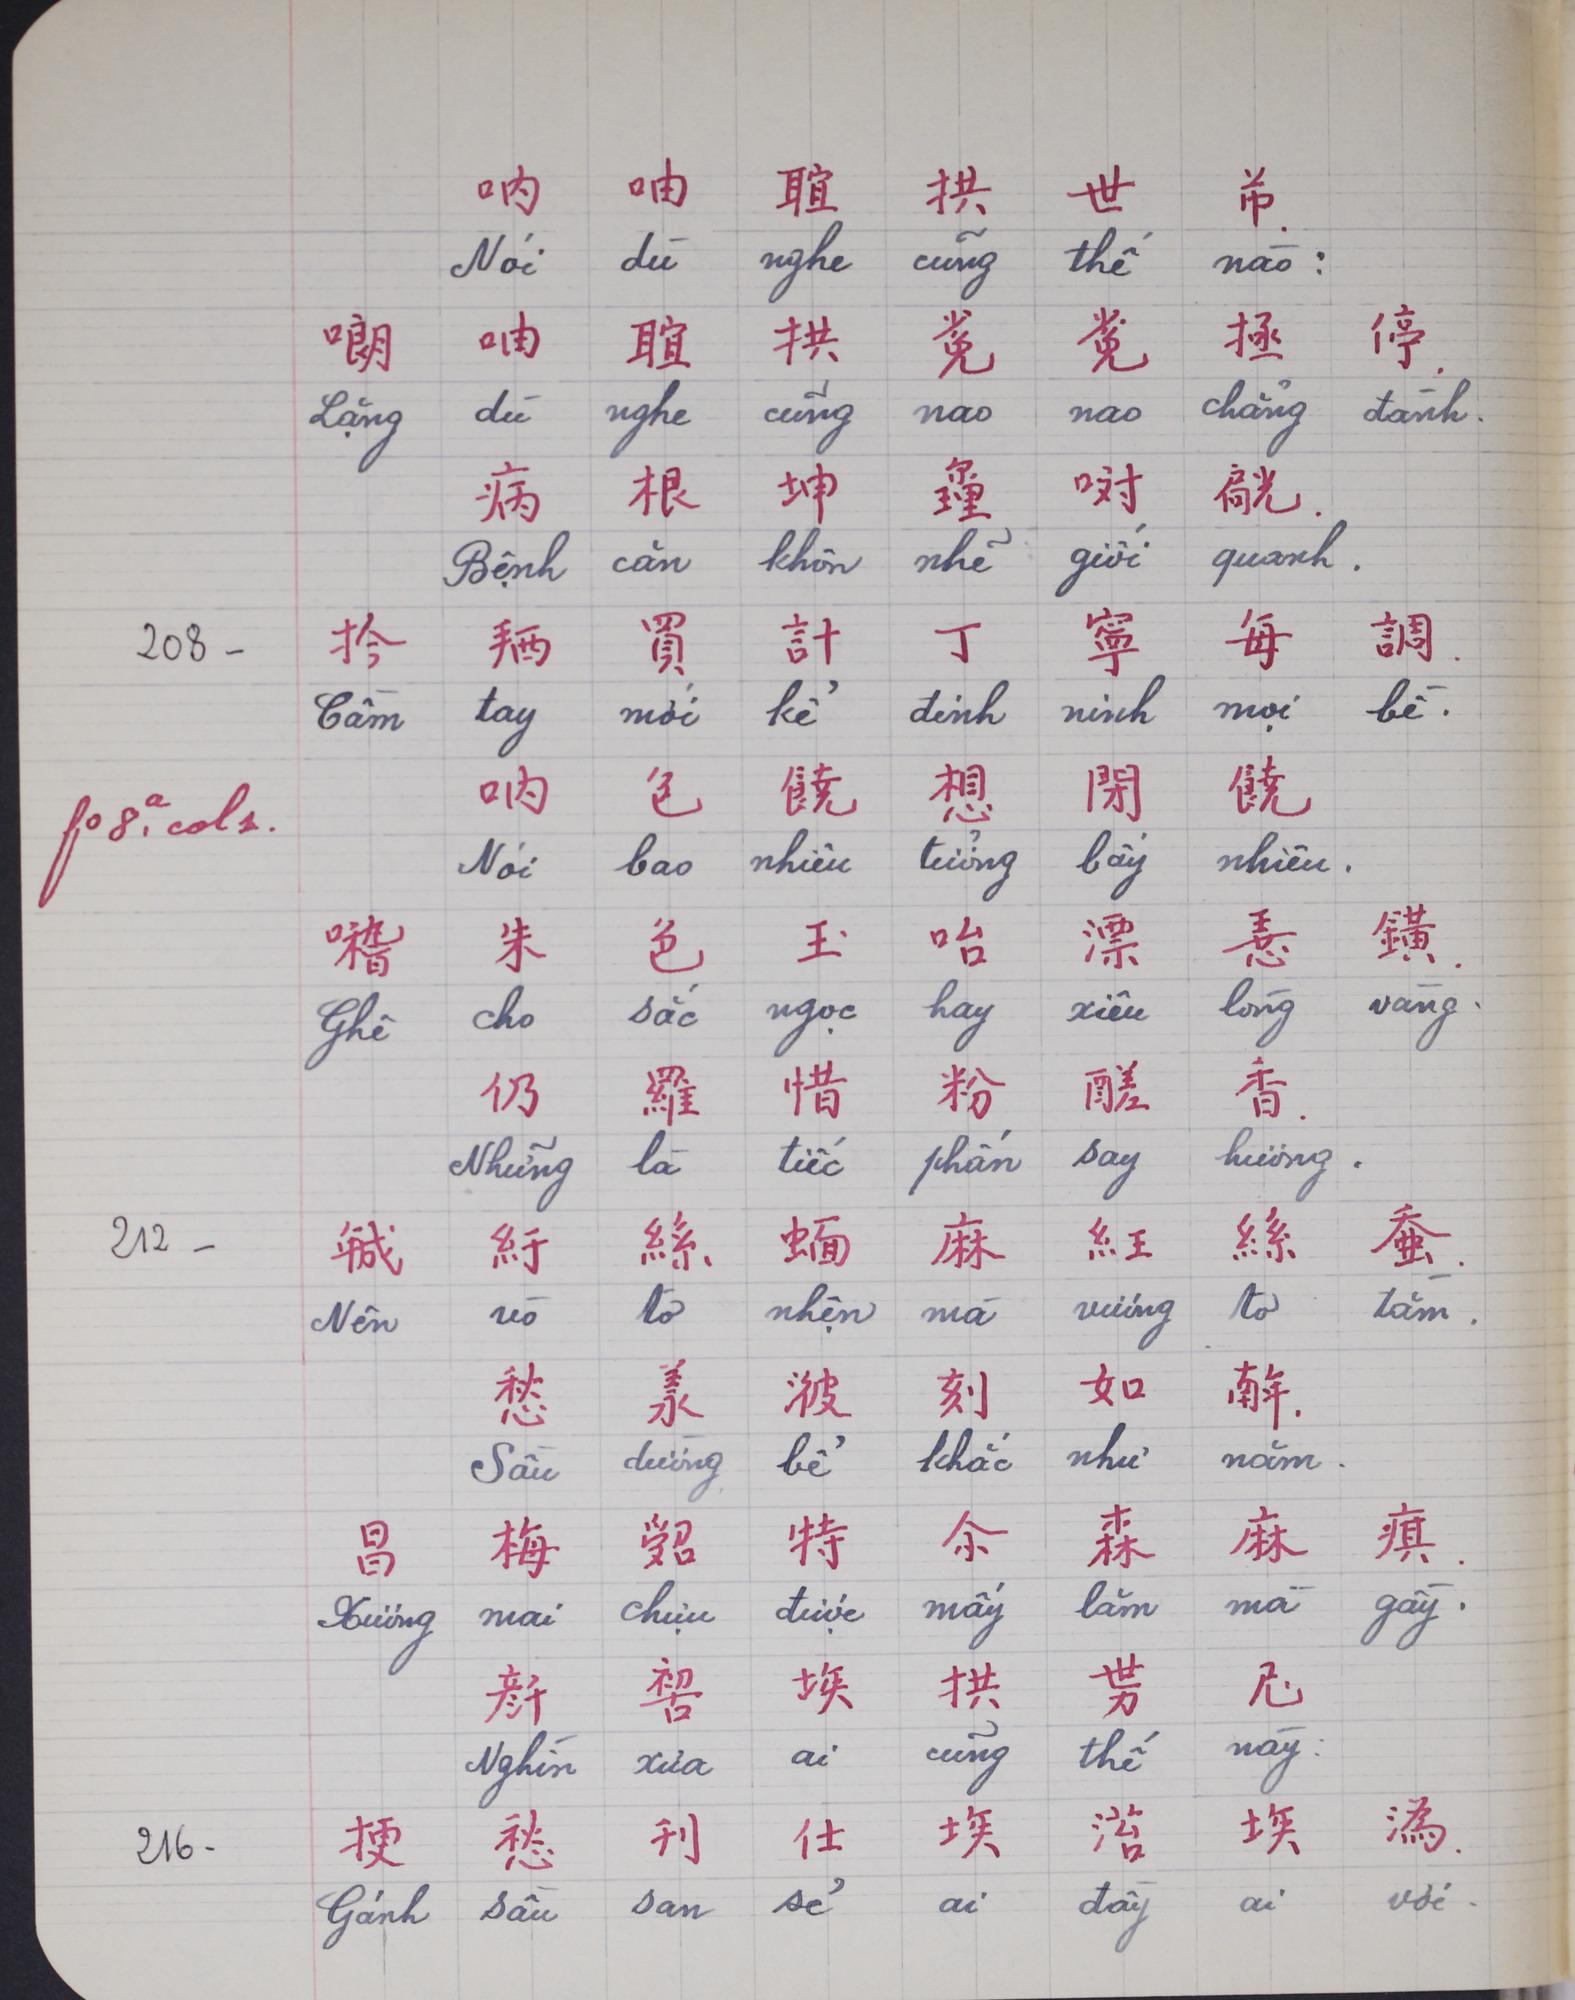 吶 㕰 𦖑 拱 世 𱜢.
Nói dù nghe cũng thế nào:
㗰 㕰 𦖑 拱 拯 停.
Lặng dù nghe cũng nao nao chẳng đành.
病 根 坤 𨤔 㘑 𨒺.
Bệnh căn khôn nhẽ giối quanh.
208 - 拎 𢬣 買 計 丁 寧 每 調.
Cầm tay mới kể đinh ninh mọi bề.
fo 8.a col 2.
吶 包 饒 想 閉 饒
Nói bao nhiêu tưởng bấy nhiêu.
朱 色 玉 咍 漂 𢚸 鐄.
Ghê cho sắc ngọc hay xiêu lòng vàng.
仍 羅 惜 粉 醝 香.
Những là tiếc phấn say hương.
212 - 𢧚 紆 絲 蝒 麻 紅 絲 蚕.
Nên vò tơ nhện mà vướng tơ tằm.
愁 羕 𣷭 刻 如 𢆥.
Sầu dường bể khắc như năm.
昌 梅 特 尒 森 麻 𤷍.
Xương mai chịu được mấy lăm mà gầy.
𠦳 𠸗 埃 拱 𠉝 尼
Nghìn xưa ai cũng thế này:
216 - 挭 愁 刊 仕 埃 埃 溈.
Gánh sầu san sẻ ai đầy ai vơi.